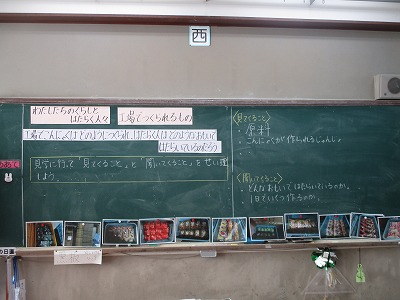 西
わたしたちのくらしと
はたらく人々
工場でつくられるもの
工場でこんにゃくはどのようにつくられ、はたらく人はどのようなおもいで
はたらいているのだろう
見学に行って「見てくること」と「聞いてくること」をせい理
しよう。
〈見てくること〉
・原料
・こんにゃくが作られるじゅんじょ
〈聞いてくること〉
・どんなおもいではたらいているのか。
・1日でいくつ作るのか。
めあて
の日直